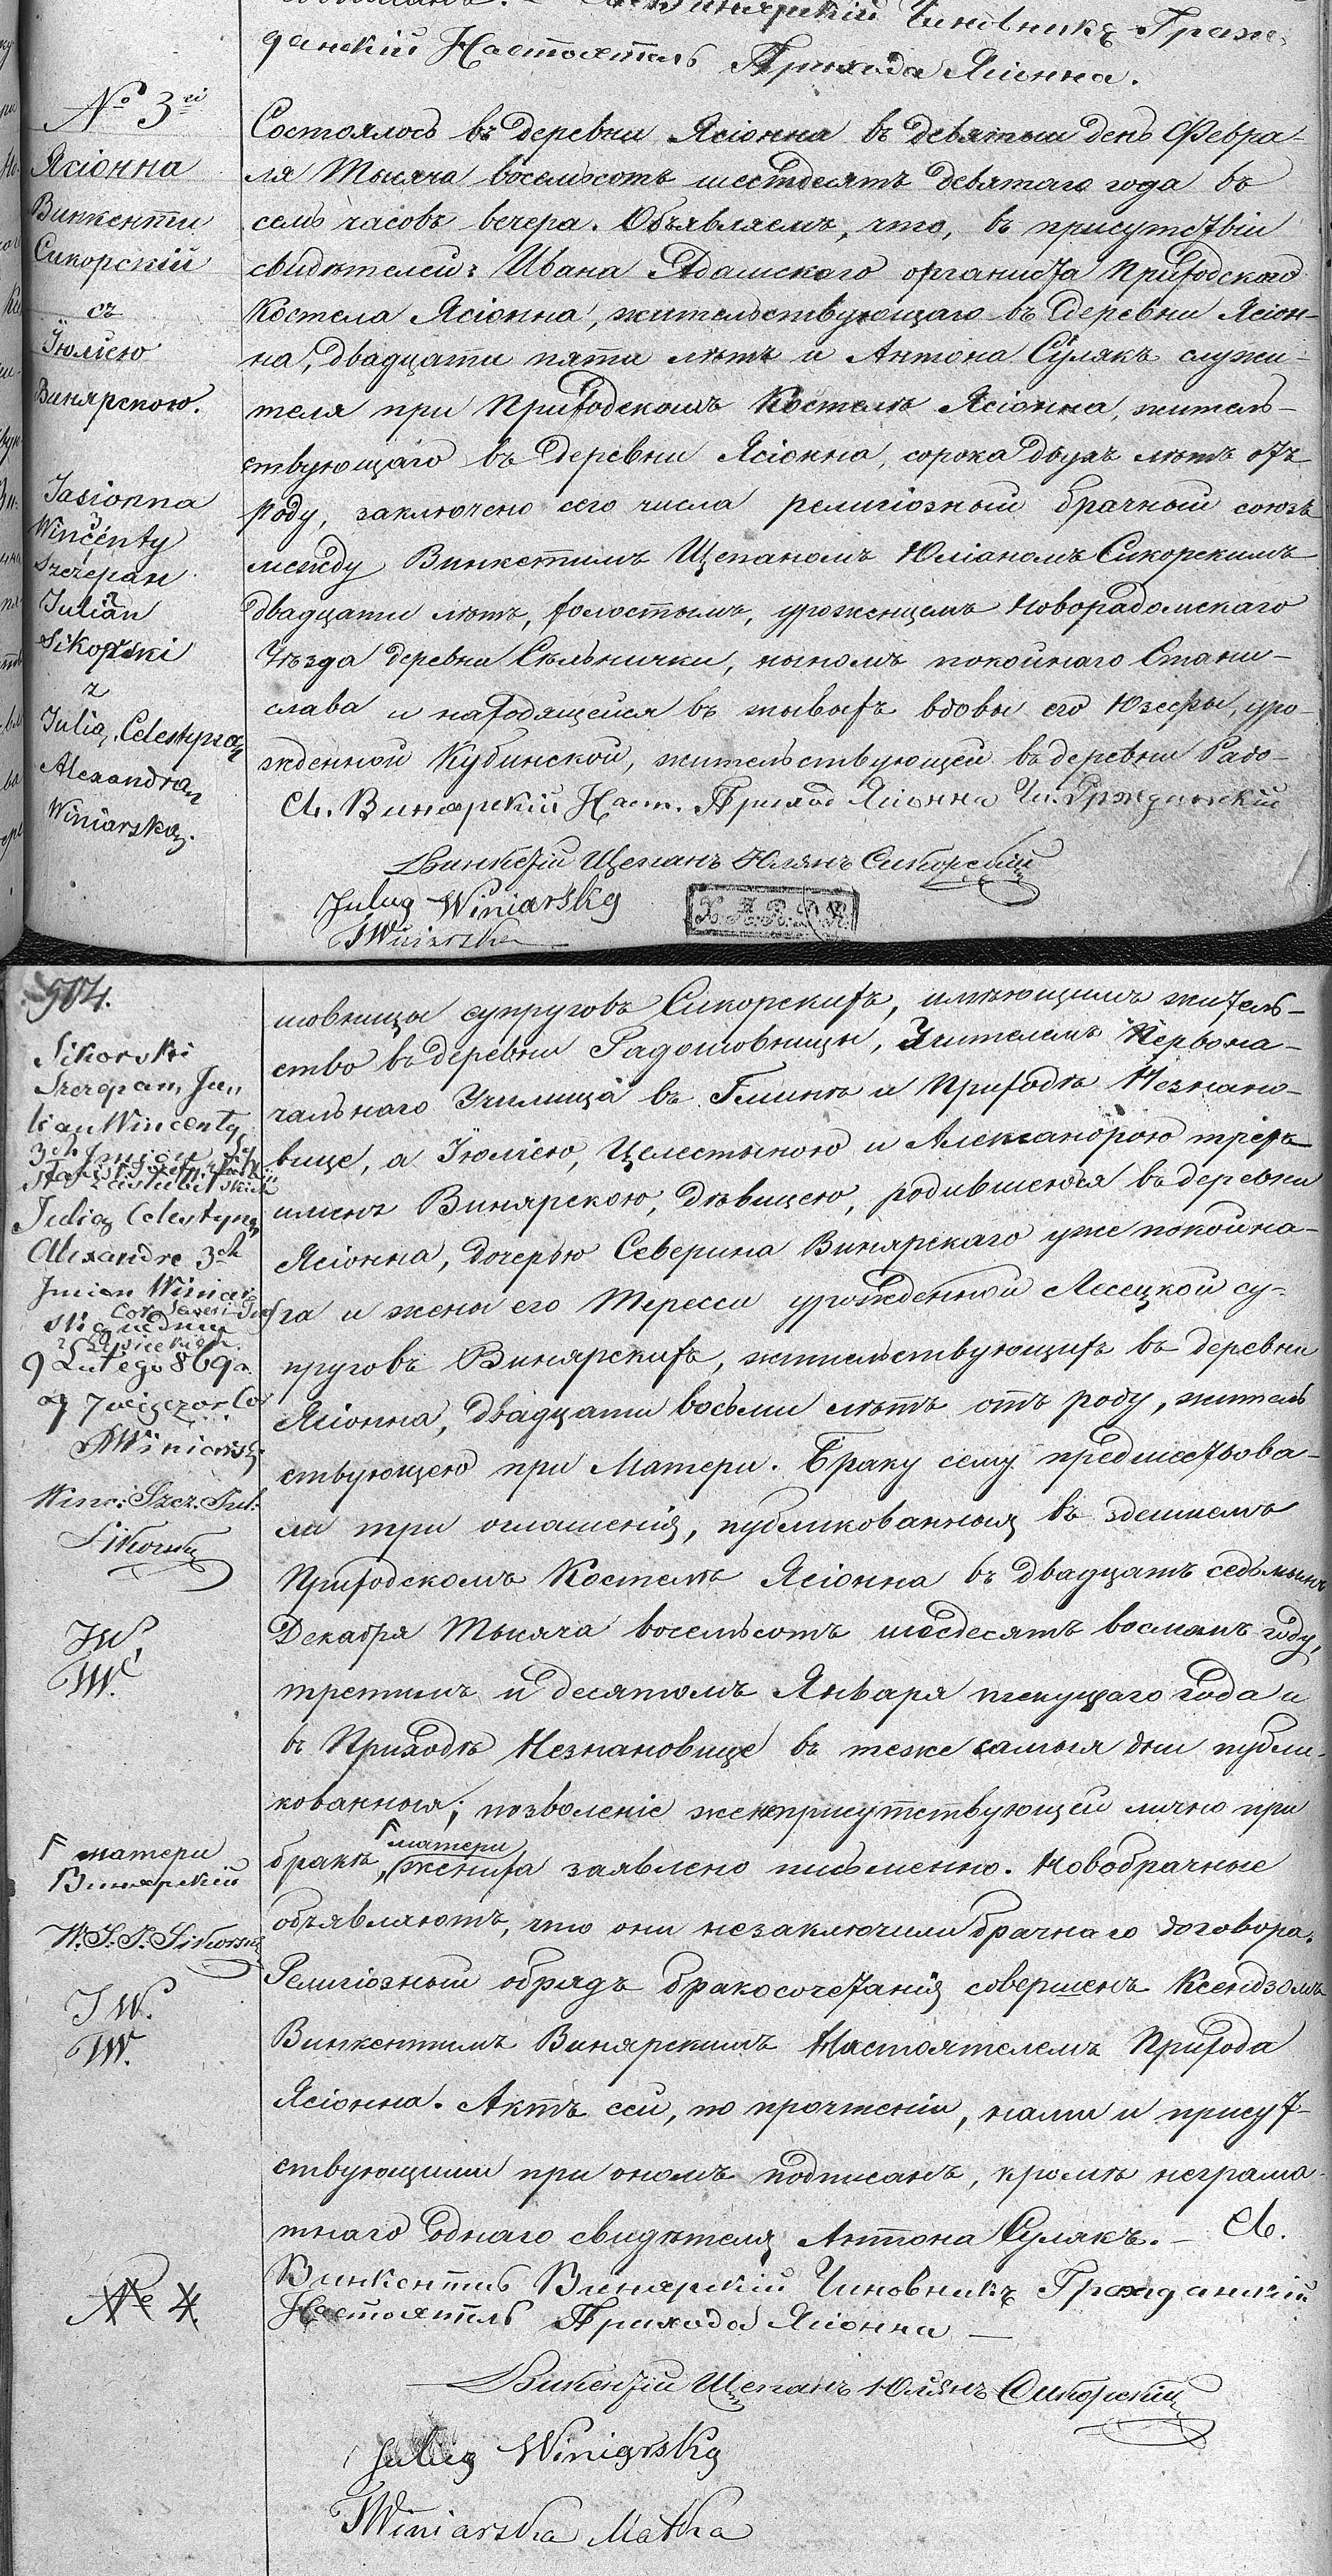 Винярскій Чиновникъ Граж-
данскій Настоятель Прихода Ясіонна.
№ 3й
Ясіонна
Винкенти
Сикорскій
съ
Іюліею
Винярскою.
Jasionna
Wincenty
Szczepan
Julian
Sikorski
z
Julią, Celestyną
Alexandrą
Winiarską.
Состоялось въ деревни Ясіонна въ девятый день Февра-
ля Тысяча восемьсотъ шестдесятъ девятаго года въ
семь часовъ вечера. Объявляемъ, что, въ присутствіи
свидѣтелей: Ивана Адамскаго органиста приходскаго
Костела Ясіонна, жительствующаго въ деревни Ясіон-
на, двадцати пяти лѣтъ и Антона Суляка служи-
теля при Приходскомъ Костелѣ Ясіонна, житель-
ствующаго въ деревни Ясіонна, сорока двухъ лѣтъ отъ
роду, заключено сего числа религіозный брачный союзъ
между Винкетимъ Щепаномъ Юліаномъ Сикорскимъ
двадцати лѣтъ, холостымъ, уроженцемъ Новорадомскаго
Уѣзда деревни Сѣльнички, сыномъ покойнаго Стани-
слава и находящейся въ живыхъ вдовы его Юзефы, уро-
жденной Кубинской, жительствующей въ деревни Радо-
Кс. Винярскій Наст. Приход Ясіонна Чи. Гржданскій
Винкетій Щепанъ Юлянъ Сикорскій
Julia Winiarska
TWiniarska
X. A. P. D. R.
904.
Sikorski
Szczepan, Ju-
lian Wincenty
3ch Imion
Julią Celestyną
Alexandrę 3ch
Imion Winiar
ską
9 Lutego 869 a.
o 7 wieczor
Winiarski
Winc: Szcz. Jul:
Sikorski
JW.
TW.
Г матери
Винярскій
W. S. J. Sikorski
JW.
TW.
№ 4.
шовницы супруговъ Сикорскихъ, имѣющимъ житель-
ство въ деревни Радошовницы, Учителемъ Первона-
чальнаго Училища въ Гминѣ и Приходѣ Незнано-
вице, а Іюліею, Целестыною и Александрою трехъ
именъ Винярскою, дѣвицею, родившеюся въ деревни
Ясіонна, дочерью Северина Винярскаго уже покойна-
га и жены его Тересси урожденной Лесецкой су-
пруговъ Винярскихъ, жительствующихъ въ деревни
Ясіонна, двадцати восьми лѣтъ отъ роду, житель
ствующею при Матери. Браку сему предшествова-
ли три оглашенія, публикованныя въ здешнемъ
Приходскомъ Костелѣ Ясіонна въ двадцать седьмымъ
Декабря Тысяча восемьсотъ шесдесятъ восмомъ году,
третимъ и десятомъ Января текущаго года и
въ Приходѣ Незнановице въ теже самыя дни публи-
кованныя; позволеніе женеприсутствующей лично при
бракѣ, Г матери жениха заявлено письменно. Новобрачные
объявляютъ, что они незаключили брачнаго договора.
Религіозный обрядъ бракосочетанія совершенъ Ксендзомъ
Винкентимъ Винярскимъ Настоятелемъ Прихода
Ясіонна. Актъ сей, по прочтеніи, нами и присут-
ствующими при ономъ подписанъ, кромѣ неграма-
тнаго однаго свидѣтеля Антона Сулякъ. — Кс.
Винкентій Винярскій Чиновникъ Гражданскій
Настоятель Прихода Ясіонна —
Викентій Щепанъ Юліянъ Сикорскій
Julia Winiarska
TWiniarska Matka